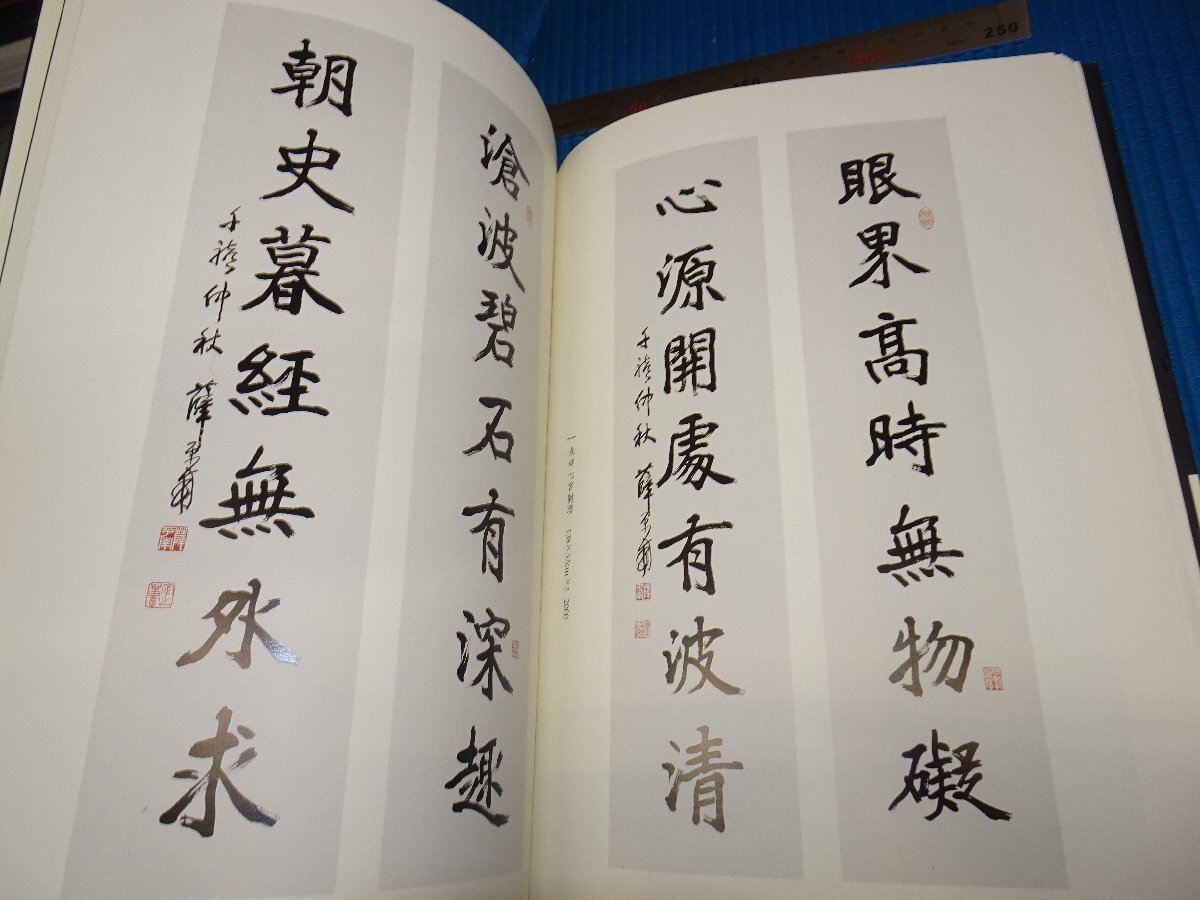 眼界高時無物礙
心源開處有波清
千禧仲秋 薛夫甫
滄波碧石有深趣
朝史暮經無外求
千禧仲秋 薛夫甫
138×33cm×2 2000
250
200